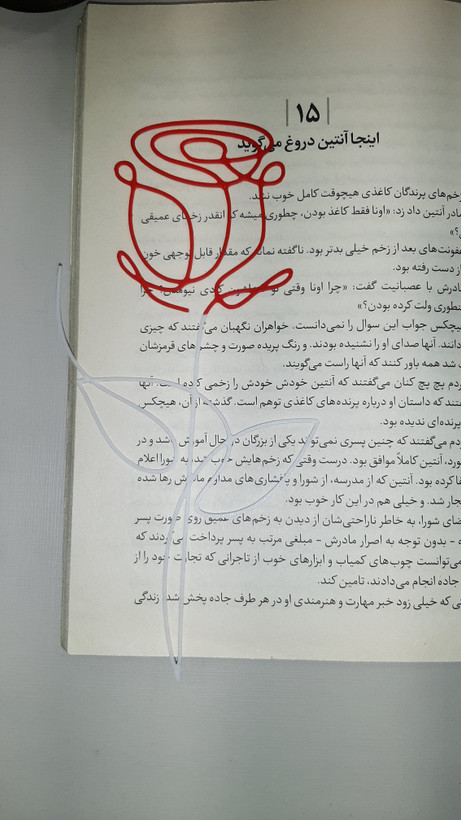 ۱۵
اینجا آنتین دروغ می‌گوید
زخم‌های پرندگان کاغذی هیچوقت کامل خوب نشد.
مادر آنتین داد زد: «اونا فقط کاغذ بودن، چطوری میشه که انقدر زخمای عمیقی
عفونت‌های بعد از زخم خیلی بدتر بود. ناگفته نماند که مقدار قابل توجهی خون
از دست رفته بود.
مادرش با عصبانیت گفت: «چرا اونا وقتی تو چرا
اینطوری ولت کرده بودن؟»
هیچکس جواب این سوال را نمی‌دانست. خواهران نگهبان می‌گفتند که چیزی
دانند. آنها صدای او را نشنیده بودند. و رنگ پریده صورت و چشم‌های قرمزشان
شد همه باور کنند که آنها راست می‌گویند.
مردم پچ پچ کنان می‌گفتند که آنتین خودش خودش را زخمی کرده است. آنها
گفتند که داستان او درباره پرنده‌های کاغذی توهم است. گذشته از آن، هیچکس
پرنده‌ای ندیده بود.
مردم می‌گفتند که چنین پسری نمی‌تواند یکی از بزرگان در حال آموزش باشد و در
آنتین کاملاً موافق بود. درست وقتی که زخم‌هایش خوب شد، به شورا اعلام
کرده بود. آنتین که از مدرسه، از شورا و پافشاری‌های مداوم مادرش رها شده
نجار شد. و خیلی هم در این کار خوب بود.
اعضای شورا، به خاطر ناراحتی‌شان از دیدن به زخم‌های عمیق روی صورت پسر
– بدون توجه به اصرار مادرش – مبلغی مرتب به پسر پرداخت می‌کردند که
می‌توانست چوب‌های کمیاب و ابزارهای خوب از تاجرانی که تجارت خود را از
جاده انجام می‌دادند، تامین کند.
که خیلی زود خبر مهارت و هنرمندی او در هر طرف جاده پخش شد. زندگی